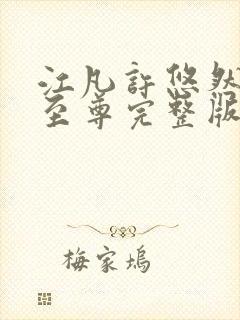 江凡許悠然
至尊完整版
梅家塢